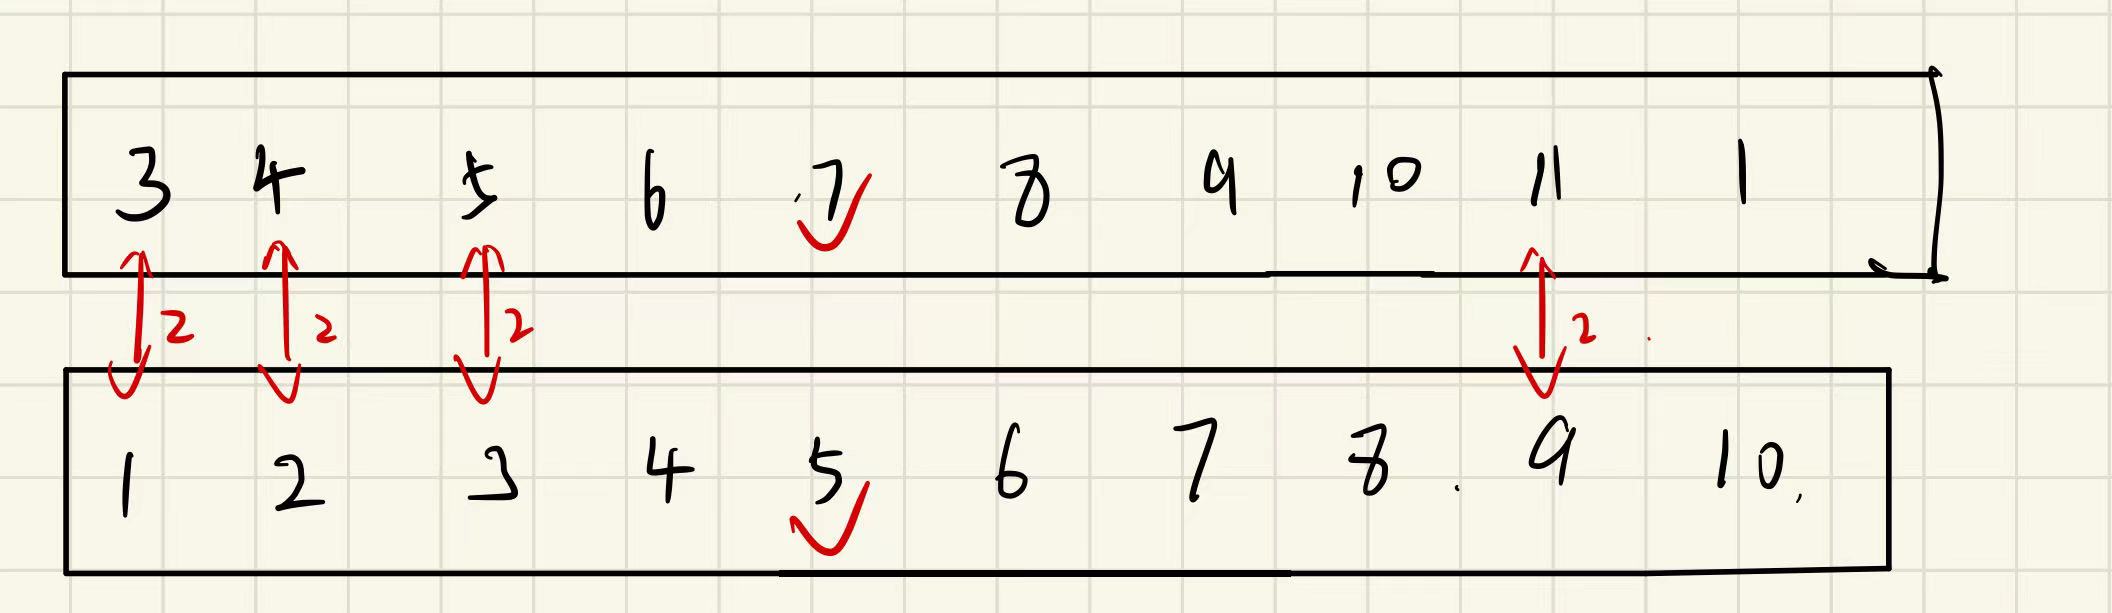 3 4 5 6 7 8 9 10 11 1
2 2 2 2
1 2 3 4 5 6 7 8 9 10